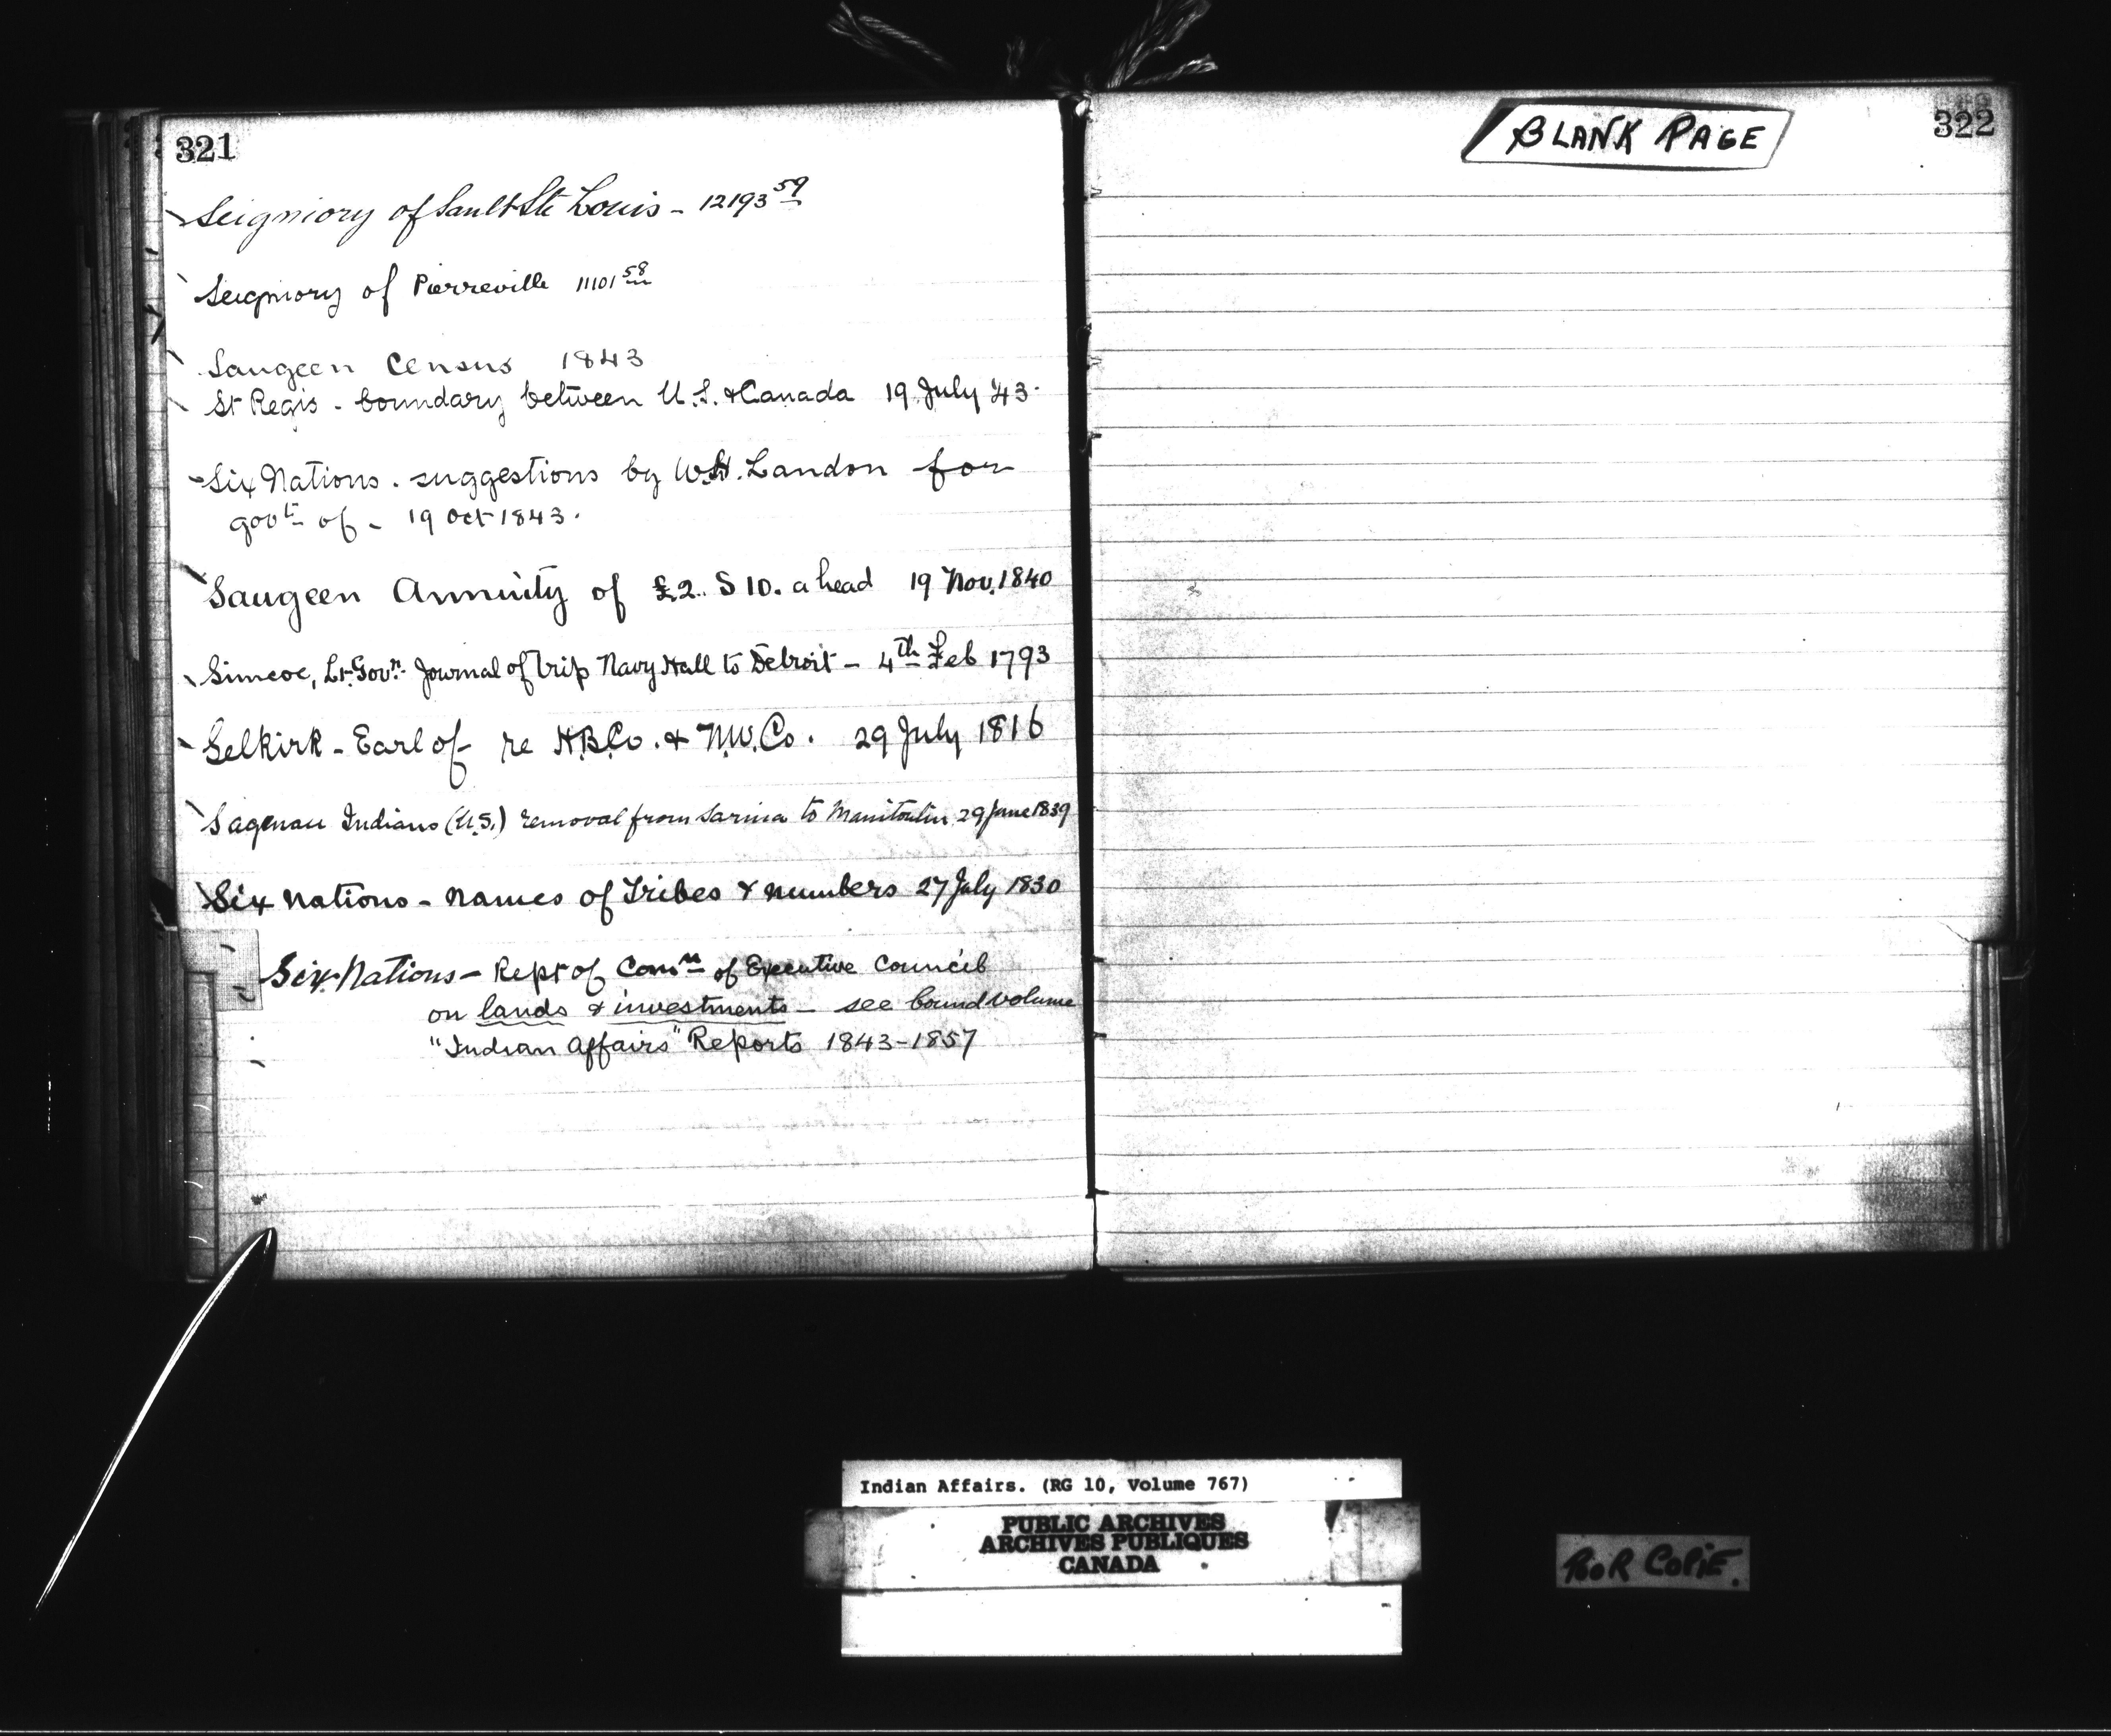 321
Seigniory of Sault Ste Louis - 12193 59
Seigniory of Pierreville 11101 58
Saugeen Census 1843
St Regis - boundary between U.S. & Canada 19 July '43.
Six Nations. suggestions by W.H. Landon for
govt of - 19 Oct 1843.
Saugeen Annuity of £2.. S 10. a head 19 Nov. 1840
Simcoe, Lt. Govr. Journal of trip Navy Hall to Detroit - 4th Feb 1793
Selkirk - Earl of re H.B.Co. & N.W.Co. 29 July 1816
Sagenau Indians (U.S.) removal from Sarnia to Manitoulin 29 June 1839
Six Nations - Names of Tribes & numbers 27 July 1830
Six Nations - Rept of Comn of Executive Council
on lands & investments - see bound volume
"Indian Affairs" Reports 1843-1857
BLANK PAGE
322
Indian Affairs. (RG 10, Volume 767)
PUBLIC ARCHIVES
ARCHIVES PUBLIQUES
CANADA
POOR COPIE.